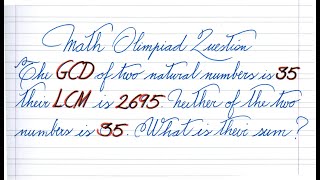 Math Olimpiad Question
The GCD of two natural numbers is 35
their LCM is 2695. Neither of the two
numbers is 35. What is their sum?